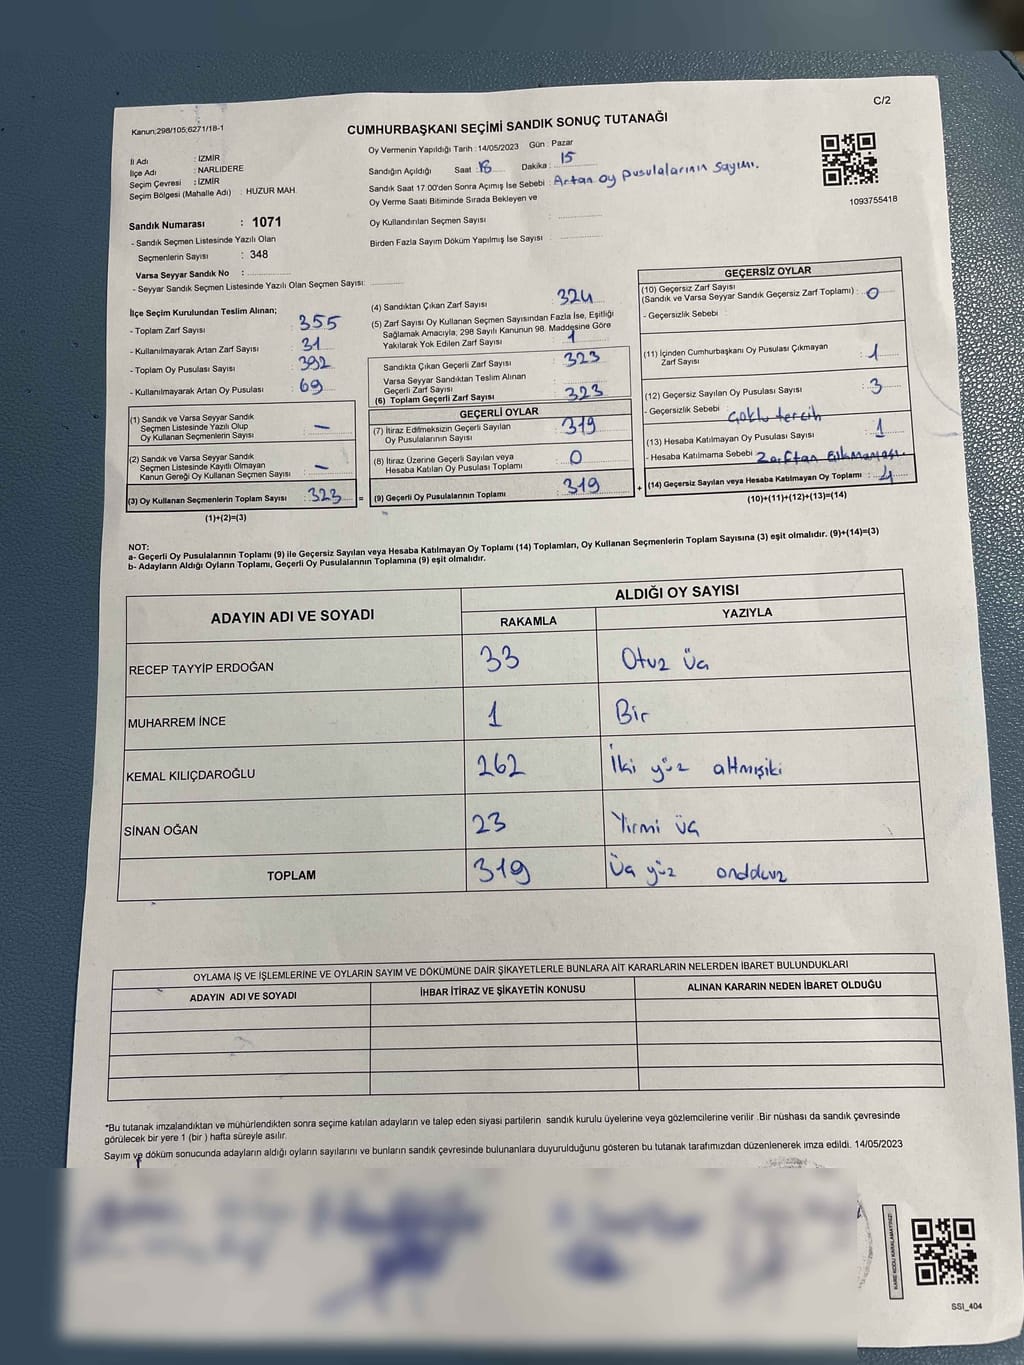 C/2
Kanun;298/105;6271/18-1
CUMHURBAŞKANI SEÇİMİ SANDIK SONUÇ TUTANAĞI
İl Adı : İZMİR
İlçe Adı : NARLIDERE
Seçim Çevresi : İZMİR
Seçim Bölgesi (Mahalle Adı) : HUZUR MAH.
Oy Vermenin Yapıldığı Tarih : 14/05/2023 Gün : Pazar
Sandığın Açıldığı Saat : 18 Dakika : 15
Sandık Saat 17.00'den Sonra Açımış İse Sebebi : Artan oy pusulalarının sayımı.
Oy Verme Saati Bitiminde Sırada Bekleyen ve
Oy Kullandırılan Seçmen Sayısı :
Birden Fazla Sayım Döküm Yapılmış İse Sayısı :
1093755418
Sandık Numarası : 1071
- Sandık Seçmen Listesinde Yazılı Olan
Seçmenlerin Sayısı : 348
Varsa Seyyar Sandık No :
- Seyyar Sandık Seçmen Listesinde Yazılı Olan Seçmen Sayısı:
İlçe Seçim Kurulundan Teslim Alınan;
- Toplam Zarf Sayısı : 355
- Kullanılmayarak Artan Zarf Sayısı : 31
- Toplam Oy Pusulası Sayısı : 392
- Kullanılmayarak Artan Oy Pusulası : 69
(1) Sandık ve Varsa Seyyar Sandık
Seçmen Listesinde Yazılı Olup
Oy Kullanan Seçmenlerin Sayısı : —
(2) Sandık ve Varsa Seyyar Sandık
Seçmen Listesinde Kayıtlı Olmayan
Kanun Gereği Oy Kullanan Seçmen Sayısı : —
(3) Oy Kullanan Seçmenlerin Toplam Sayısı : 323 =
(1)+(2)=(3)
(4) Sandıktan Çıkan Zarf Sayısı : 324
(5) Zarf Sayısı Oy Kullanan Seçmen Sayısından Fazla İse, Eşitliği
Sağlamak Amacıyla, 298 Sayılı Kanunun 98. Maddesine Göre
Yakılarak Yok Edilen Zarf Sayısı : 1
Sandıkta Çıkan Geçerli Zarf Sayısı : 323
Varsa Seyyar Sandıktan Teslim Alınan
Geçerli Zarf Sayısı :
(6) Toplam Geçerli Zarf Sayısı : 323
GEÇERLİ OYLAR
(7) İtiraz Edilmeksizin Geçerli Sayılan
Oy Pusulalarının Sayısı : 319
(8) İtiraz Üzerine Geçerli Sayılan veya
Hesaba Katılan Oy Pusulası Toplamı : 0
(9) Geçerli Oy Pusulalarının Toplamı : 319 +
GEÇERSİZ OYLAR
(10) Geçersiz Zarf Sayısı
(Sandık ve Varsa Seyyar Sandık Geçersiz Zarf Toplamı) : 0
- Geçersizlik Sebebi :
(11) İçinden Cumhurbaşkanı Oy Pusulası Çıkmayan
Zarf Sayısı : 1
(12) Geçersiz Sayılan Oy Pusulası Sayısı : 3
- Geçersizlik Sebebi : Çoklu tercih
(13) Hesaba Katılmayan Oy Pusulası Sayısı : 1
- Hesaba Katılmama Sebebi : Zarftan çıkmaması.
(14) Geçersiz Sayılan veya Hesaba Katılmayan Oy Toplamı : 4
(10)+(11)+(12)+(13)=(14)
NOT:
a- Geçerli Oy Pusulalarının Toplamı (9) ile Geçersiz Sayılan veya Hesaba Katılmayan Oy Toplamı (14) Toplamları, Oy Kullanan Seçmenlerin Toplam Sayısına (3) eşit olmalıdır. (9)+(14)=(3)
b- Adayların Aldığı Oyların Toplamı, Geçerli Oy Pusulalarının Toplamına (9) eşit olmalıdır.
ADAYIN ADI VE SOYADI
ALDIĞI OY SAYISI
RAKAMLA YAZIYLA
RECEP TAYYİP ERDOĞAN 33 Otuz üç
MUHARREM İNCE 1 Bir
KEMAL KILIÇDAROĞLU 262 İki yüz altmışiki
SİNAN OĞAN 23 Yirmi üç
TOPLAM 319 Üç yüz ondokuz
OYLAMA İŞ VE İŞLEMLERİNE VE OYLARIN SAYIM VE DÖKÜMÜNE DAİR ŞİKAYETLERLE BUNLARA AİT KARARLARIN NELERDEN İBARET BULUNDUKLARI
ADAYIN ADI VE SOYADI İHBAR İTİRAZ VE ŞİKAYETİN KONUSU ALINAN KARARIN NEDEN İBARET OLDUĞU
*Bu tutanak imzalandıktan ve mühürlendikten sonra seçime katılan adayların ve talep eden siyasi partilerin sandık kurulu üyelerine veya gözlemcilerine verilir .Bir nüshası da sandık çevresinde
görülecek bir yere 1 (bir ) hafta süreyle asılır.
Sayım ve döküm sonucunda adayların aldığı oyların sayılarını ve bunların sandık çevresinde bulunanlara duyurulduğunu gösteren bu tutanak tarafımızdan düzenlenerek imza edildi. 14/05/2023
KARE KODU KARALAMAYINIZ!
SSI_404